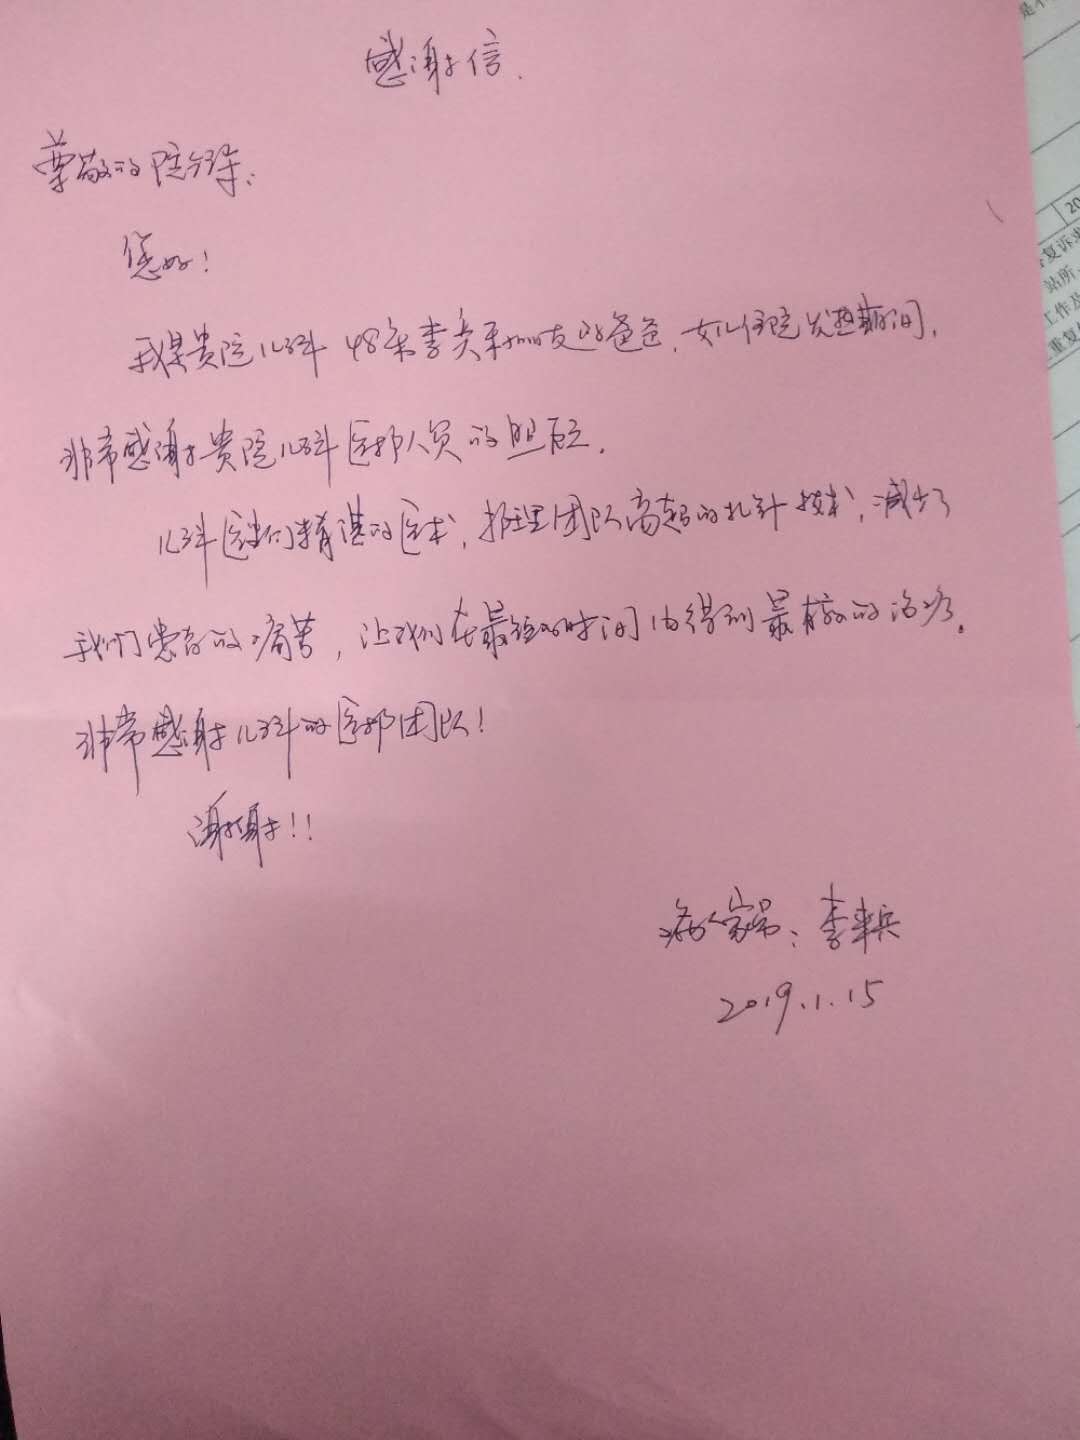 感谢信.
尊敬的院领导:
您好!
我是贵院儿科48床李奕 小朋友的爸爸,女儿住院发热期间,
非常感谢贵院儿科医护人员的照顾.
儿科医生们精湛的医术,护理团队高超的扎针技术,减少了
我们患者的痛苦,让我们在最短的时间内得到最有效的治疗.
非常感谢儿科的医护团队!
谢谢!!
病人家属:李来兵
2019.1.15
是不
20
复诉业
站所、
工作及
重复